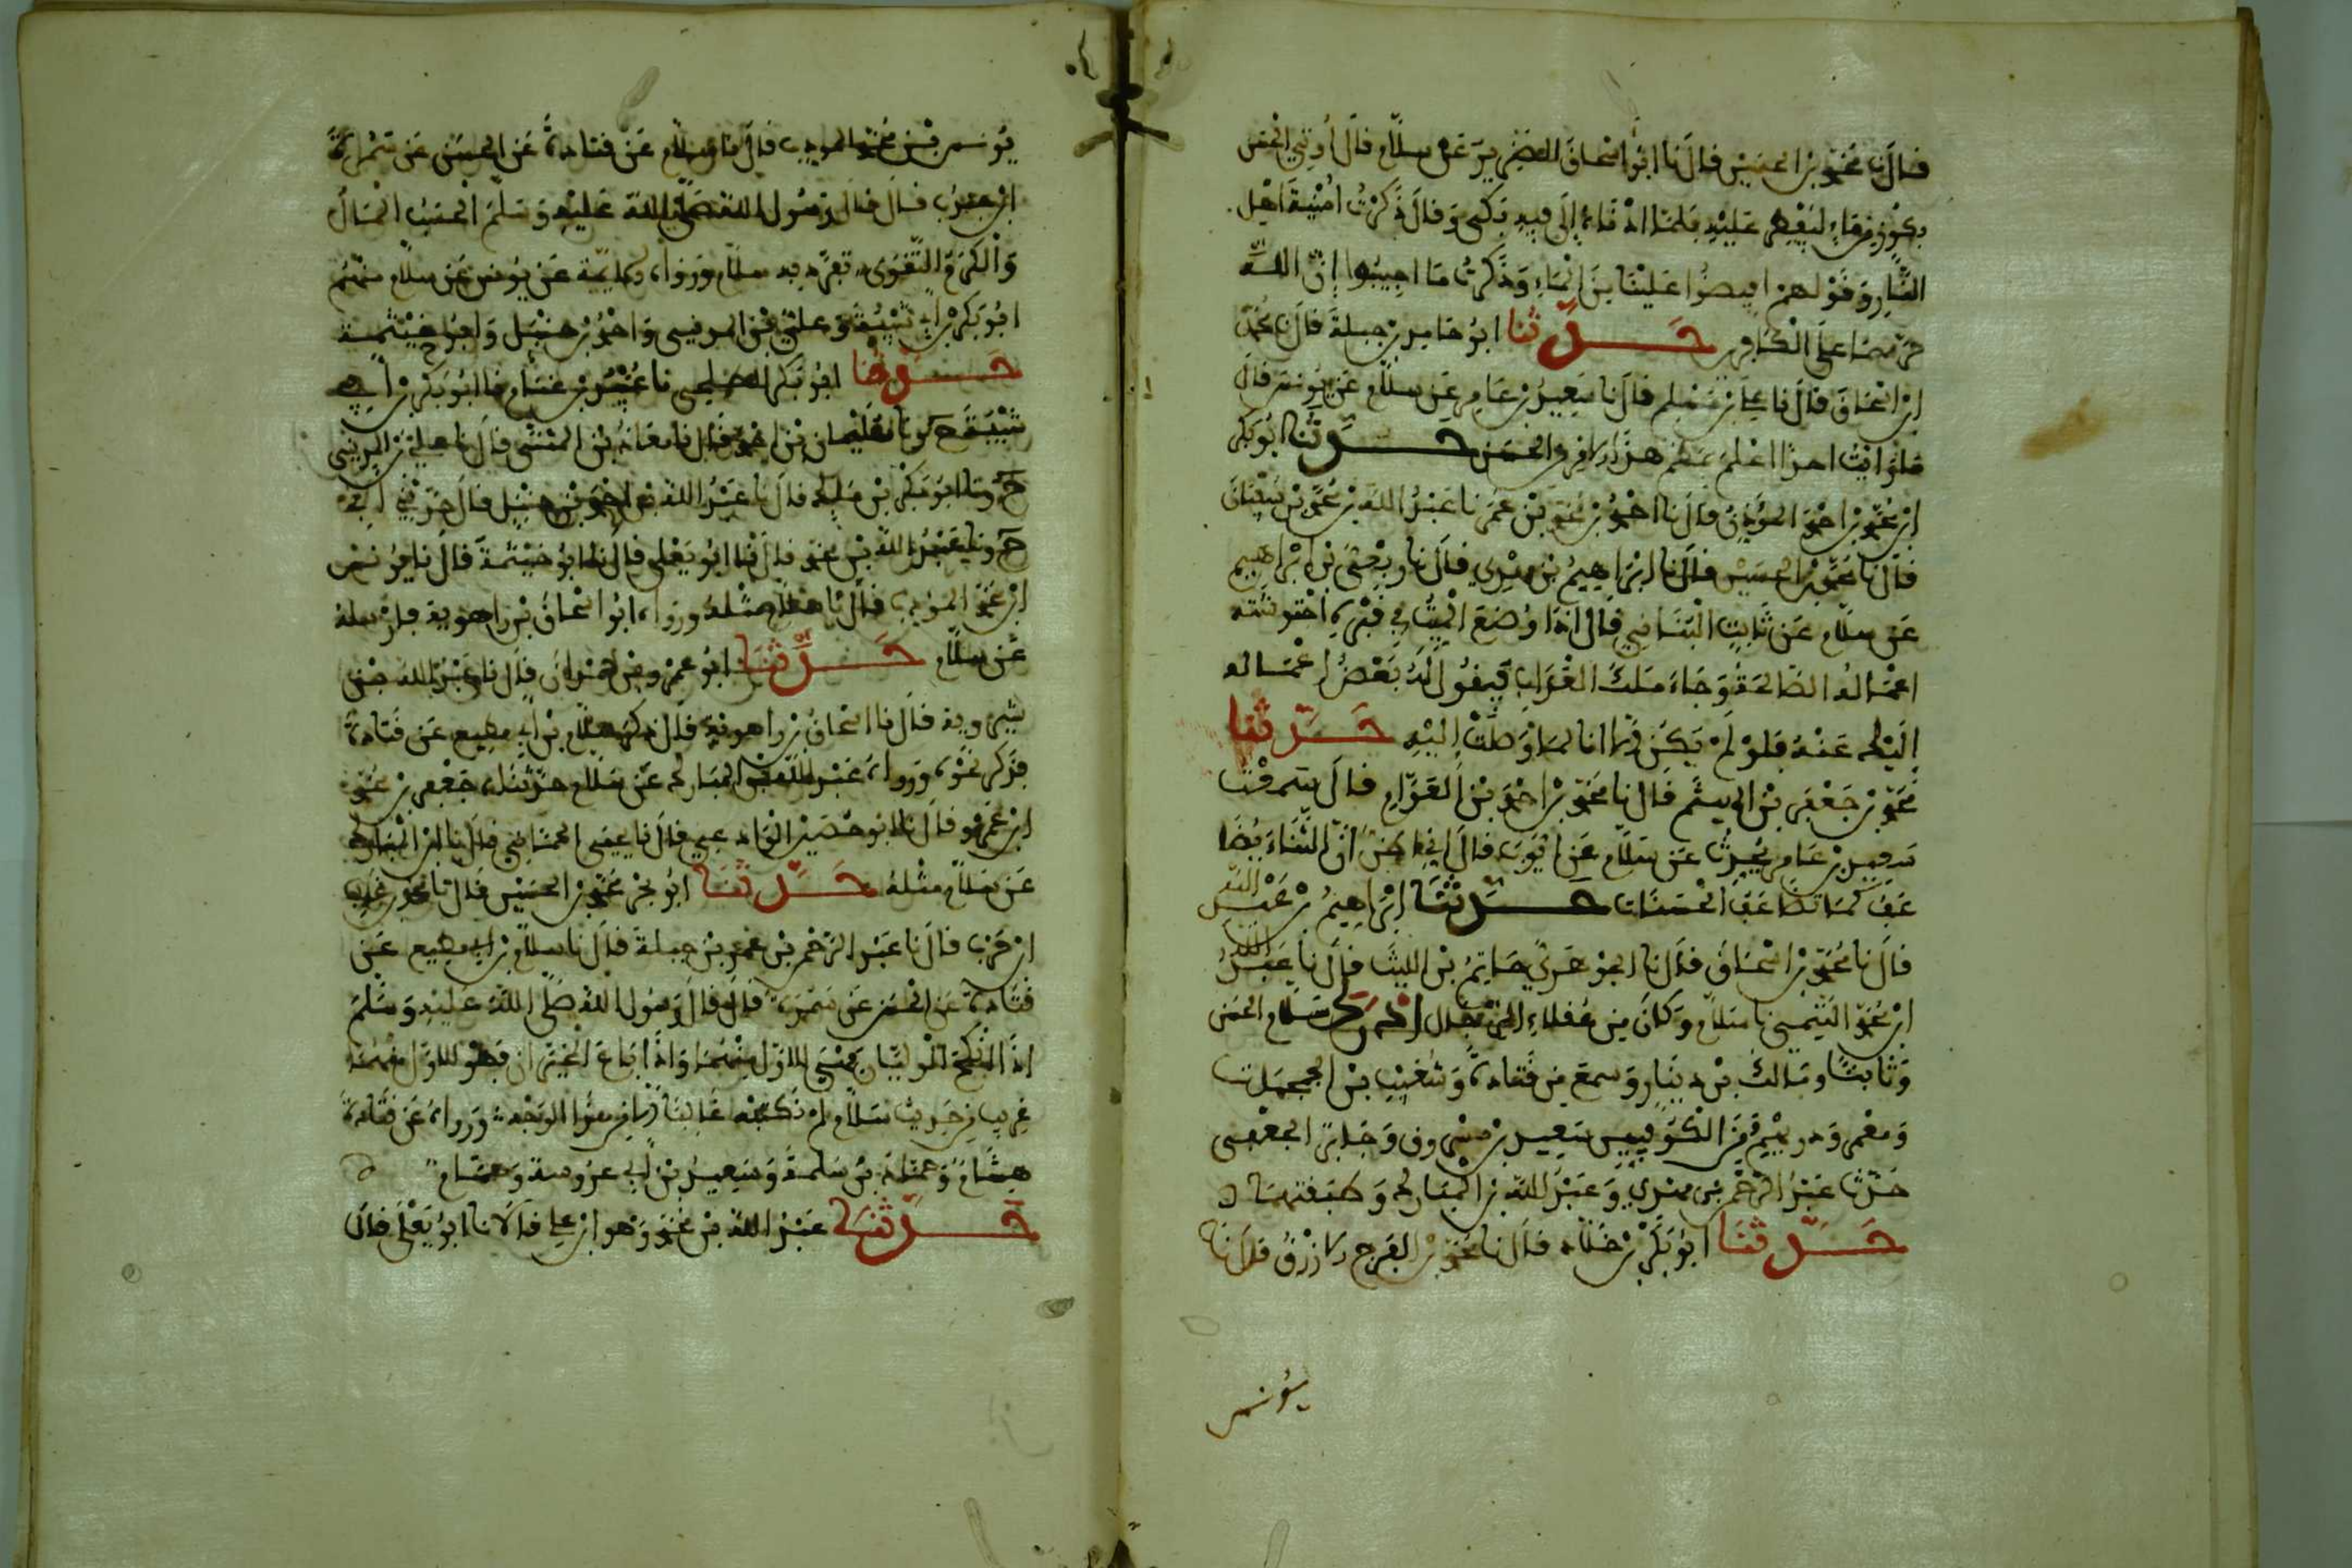 قال نا محمد بن الحسين قال نا ابو اسحاق الضرير عن سلام قال أوتي الحسن
بكوز من ماء ليفطر عليه فلما ادناه إلى فيه بكى وقال ذكرت امنية اهل
النار وقولهم افيضوا علينا من الماء وذكرت ما اجيبوا إن الله
حرمهما على الكافرين حدثنا ابو حامد بن جبلة قال نا محمد
ابن اسحاق قال نا علي بن مسلم قال نا سعيد بن عامر عن سلام عن يونس قال
ما رايت احدا اعظم هذا والحسن حدثنا ابو بكر
ابن محمد بن احمد المؤذن قال نا احمد بن محمد بن عمر نا عبد الله بن محمد بن سفيان
قال نا محمد بن الحسين قال نا ابراهيم بن مهدي قال نا بن ابراهيم
عن سلام عن ثابت البناني قال اذا وضع الميت في قبره احتوشته
اعماله الصالحة وجاء ملك العذاب فيقول له بعض اعماله
إليك عنه فلو لم يكن إلا انا لما وصلت إليه حدثنا
محمد بن جعفر بن الهيثم قال نا محمد بن احمد بن العوام قال سمعت
سعيد بن عامر يحدث عن سلام عن ايوب قال أن الثناء يضا
عف كما تضاعف الحسنات حدثنا إبراهيم بن عبد الله
قال نا محمد بن اسحاق قال نا الجوهري حاتم بن الليث قال نا عبد الله
ابن محمد التيمي نا سلام وكان من عقلاء الرجال ادرك سلام الحسن
وثابتا ومالك بن دينار وسمع من قتادة وشعيب بن الحبحاب
ومعمر وحدث من الكوفيين سعيد بن مسروق وجابر الجعفي
حدثنا عبد الرحمن بن مهدي وعبد الله بن المبارك وطبقتهما
حدثنا ابو بكر بن خلاد قال نا محمد بن الفرج الازرق قال نا
يونس
يونس بن محمد المودب قال نا سلام عن قتادة عن الحسن عن سمرة
ابن جندب قال قال رسول الله صلى الله عليه وسلم الحسب المال
والكرم التقوى تفرد به سلام ورواه عن يونس عن سلام منهم
ابو بكر بن أبي شيبة وعلي بن المديني واحمد بن حنبل وابو خيثمة
حدثنا ابو بكر الطلحي نا عبيد بن غنام نا ابو بكر بن أبي
شيبة ح ونا سليمان بن احمد قال نا معاذ بن المثنى قال نا علي بن المديني
ح ونا ابو بكر بن مالك قال نا عبد الله بن احمد بن حنبل قال حدثني ابي
ح ونا عبد الله بن محمد قال نا ابو يعلى قال نا ابو خيثمة قال نا يونس
ابن محمد المودب قال نا سلام مثله ورواه ابو اسحاق بن راهويه
عن سلام حدثنا ابو عمرو بن حمدان قال نا عبد الله بن
شيرويه قال نا اسحاق بن راهويه قال ذكر سلام بن أبي مطيع عن قتادة
فذكر نحوه ورواه عبد الله بن المبارك عن سلام حدثناه جعفر بن محمد
ابن عمرو قال نا ابو حصين الوادعي قال نا يحيى الحماني قال نا ابن المبارك
عن سلام مثله حدثنا ابو بحر محمد بن الحسن قال نا محمد بن غالب
ابن حرب قال نا عبد الرحمن بن عمرو بن جبلة قال نا سلام بن أبي مطيع عن
قتادة عن الحسن عن سمرة قال قال رسول الله صلى الله عليه وسلم
اذا انكح الوليان فهي للاول منهما واذا باع المجيزان فهو للاول منهما
غريب من حديث سلام لم نكتبه عاليا إلا من هذا الوجه ورواه عن قتادة
هشام وحماد بن سلمة وسعيد بن أبي عروبة وهمام
حدثنا عبد الله بن محمد وهو ابن علي قالا نا ابو يعلى قال